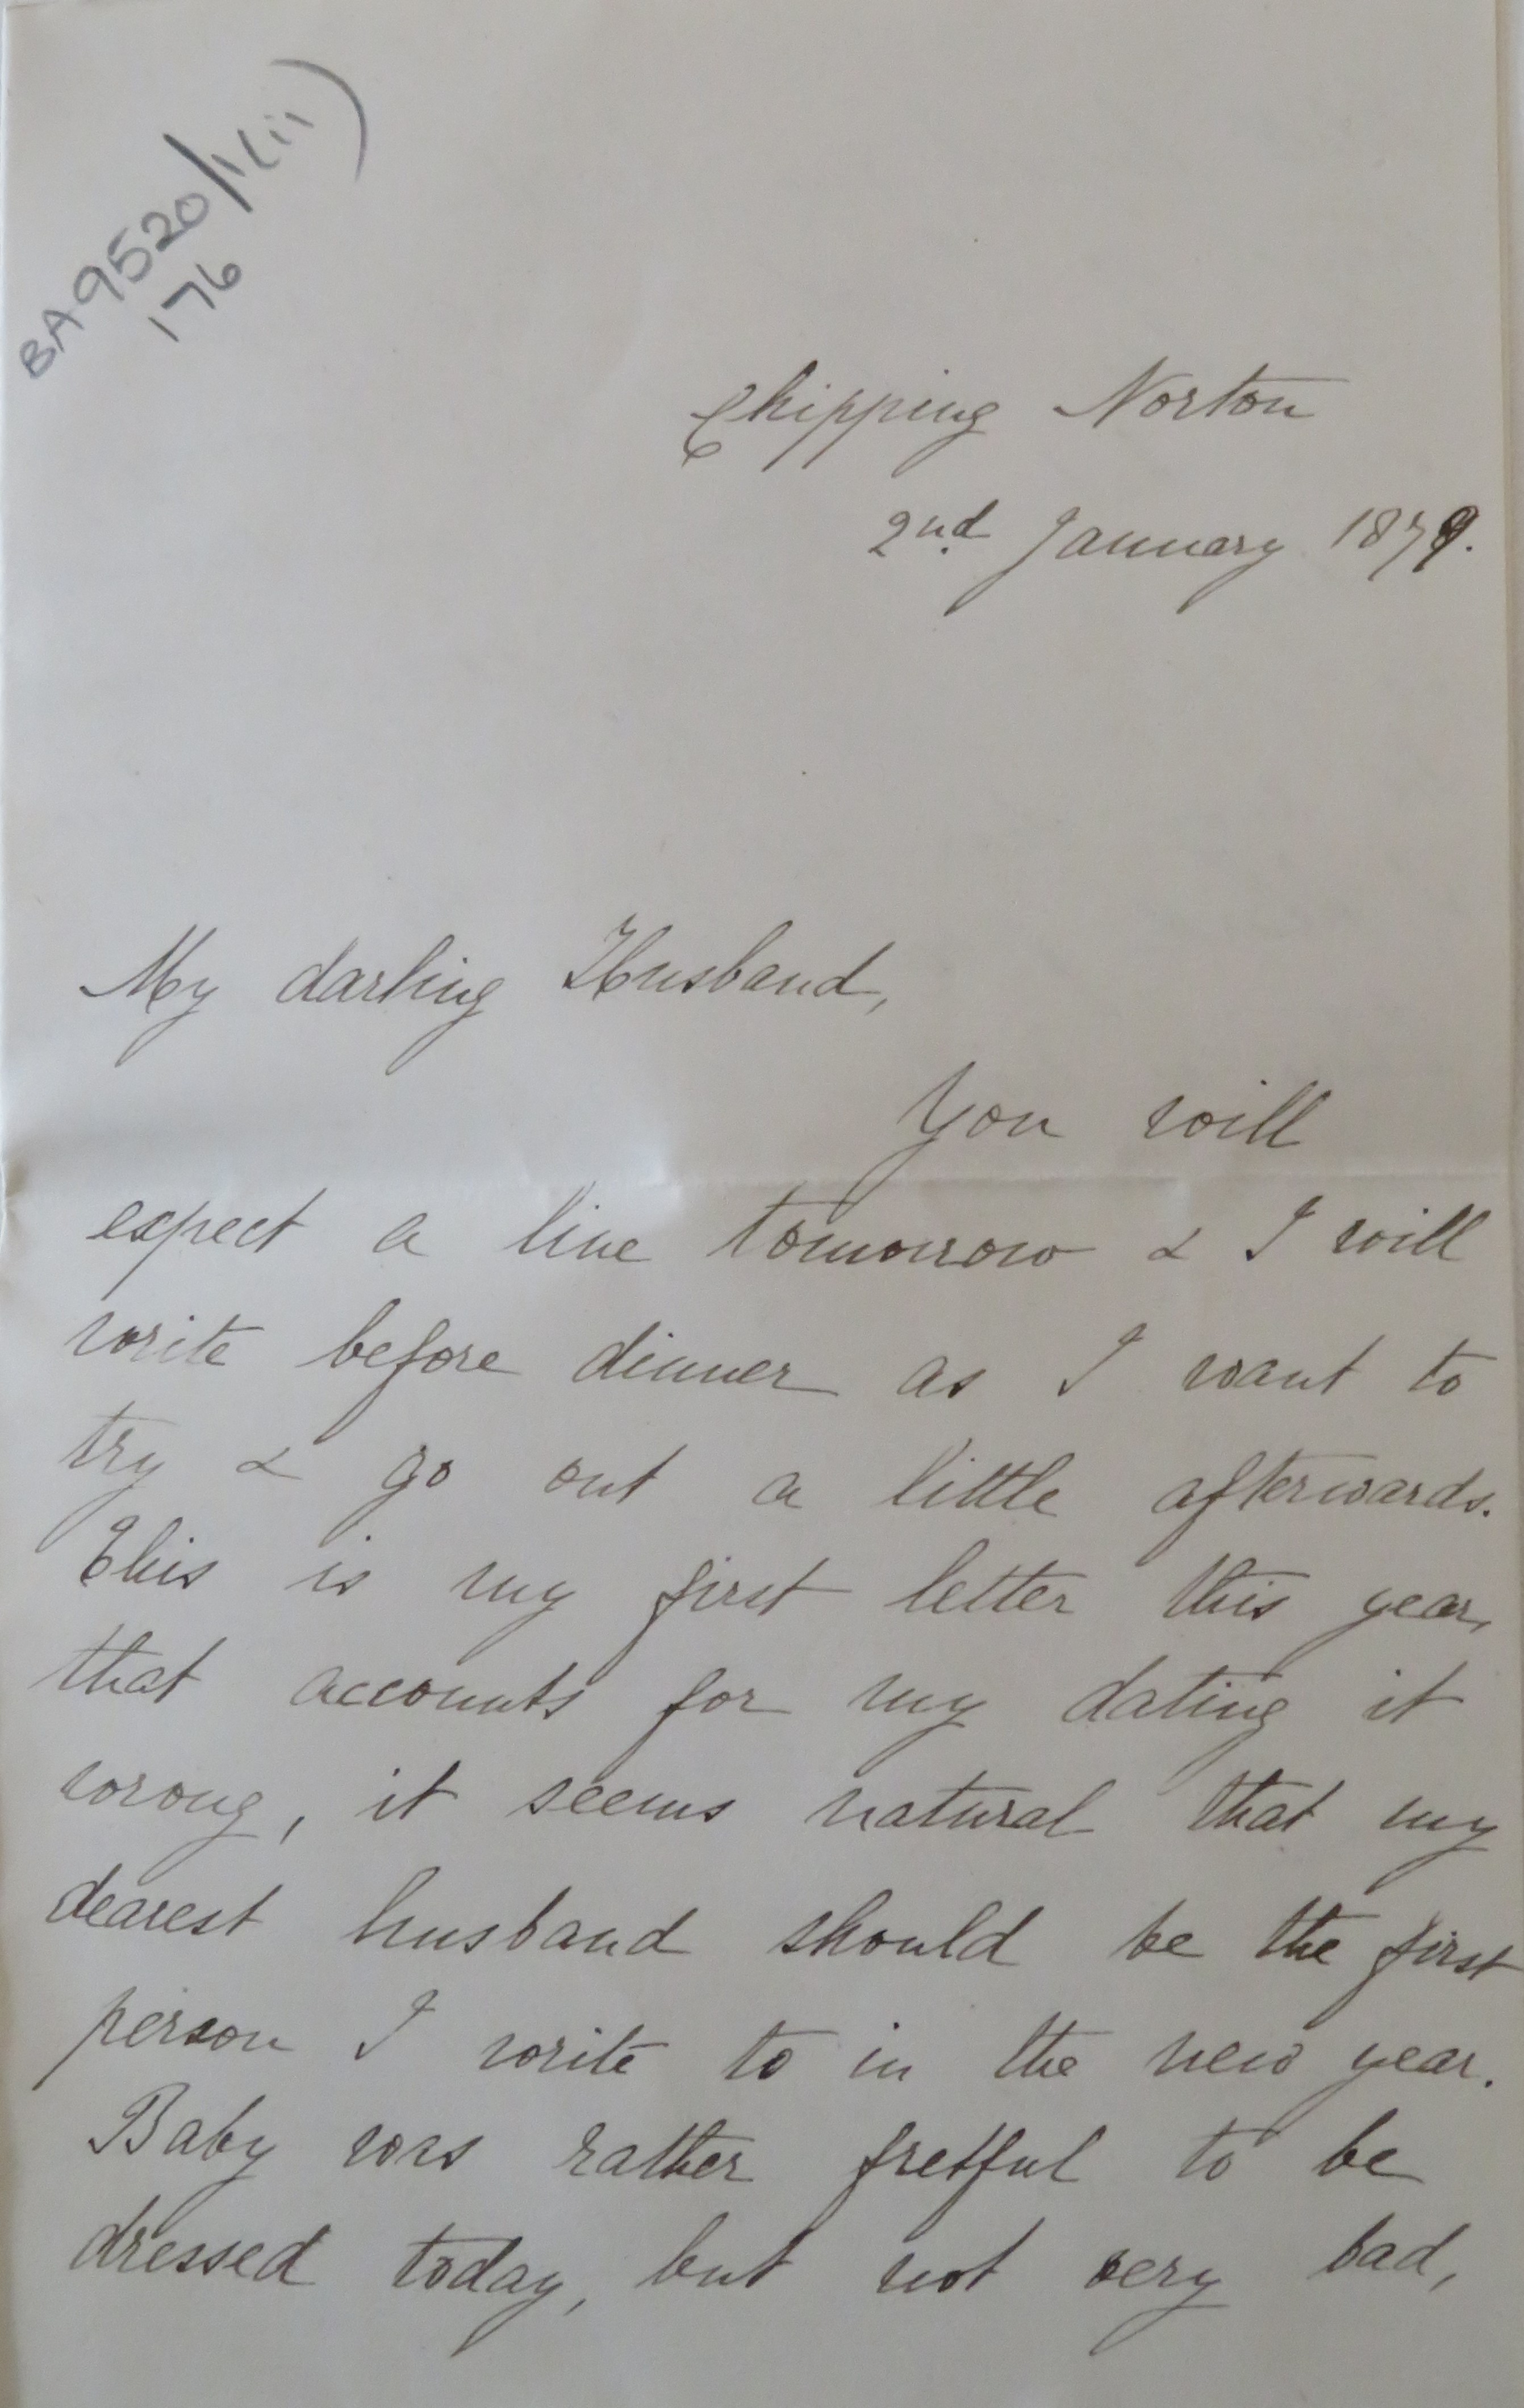 BA9520/1(ii)
176
Chipping Norton
2nd January 1879.
My darling Husband,
You will
expect a line tomorrow & I will
write before dinner as I want to
try & go out a little afterwards.
This is my first letter this year,
that accounts for my dating it
wrong, it seems natural that my
dearest husband should be the first
person I write to in the new year.
Baby was rather fretful to be
dressed today, but not very bad,